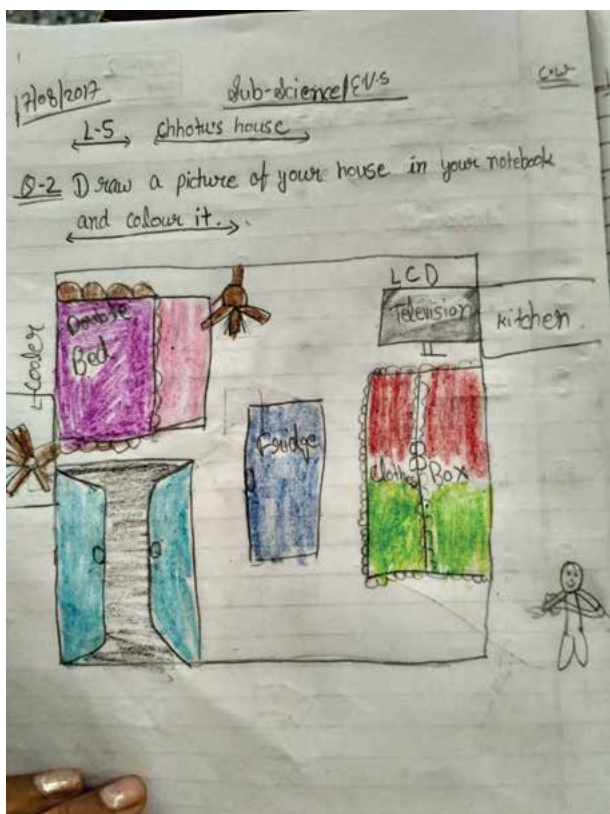 17/08/2017 Sub-Science/EVS C.W
L-5 Chhotu's house
Q-2 Draw a picture of your house in your notebook
and colour it.
LCD
Double Television Kitchen
Bed
Cooler
Fridge
Clothes Box